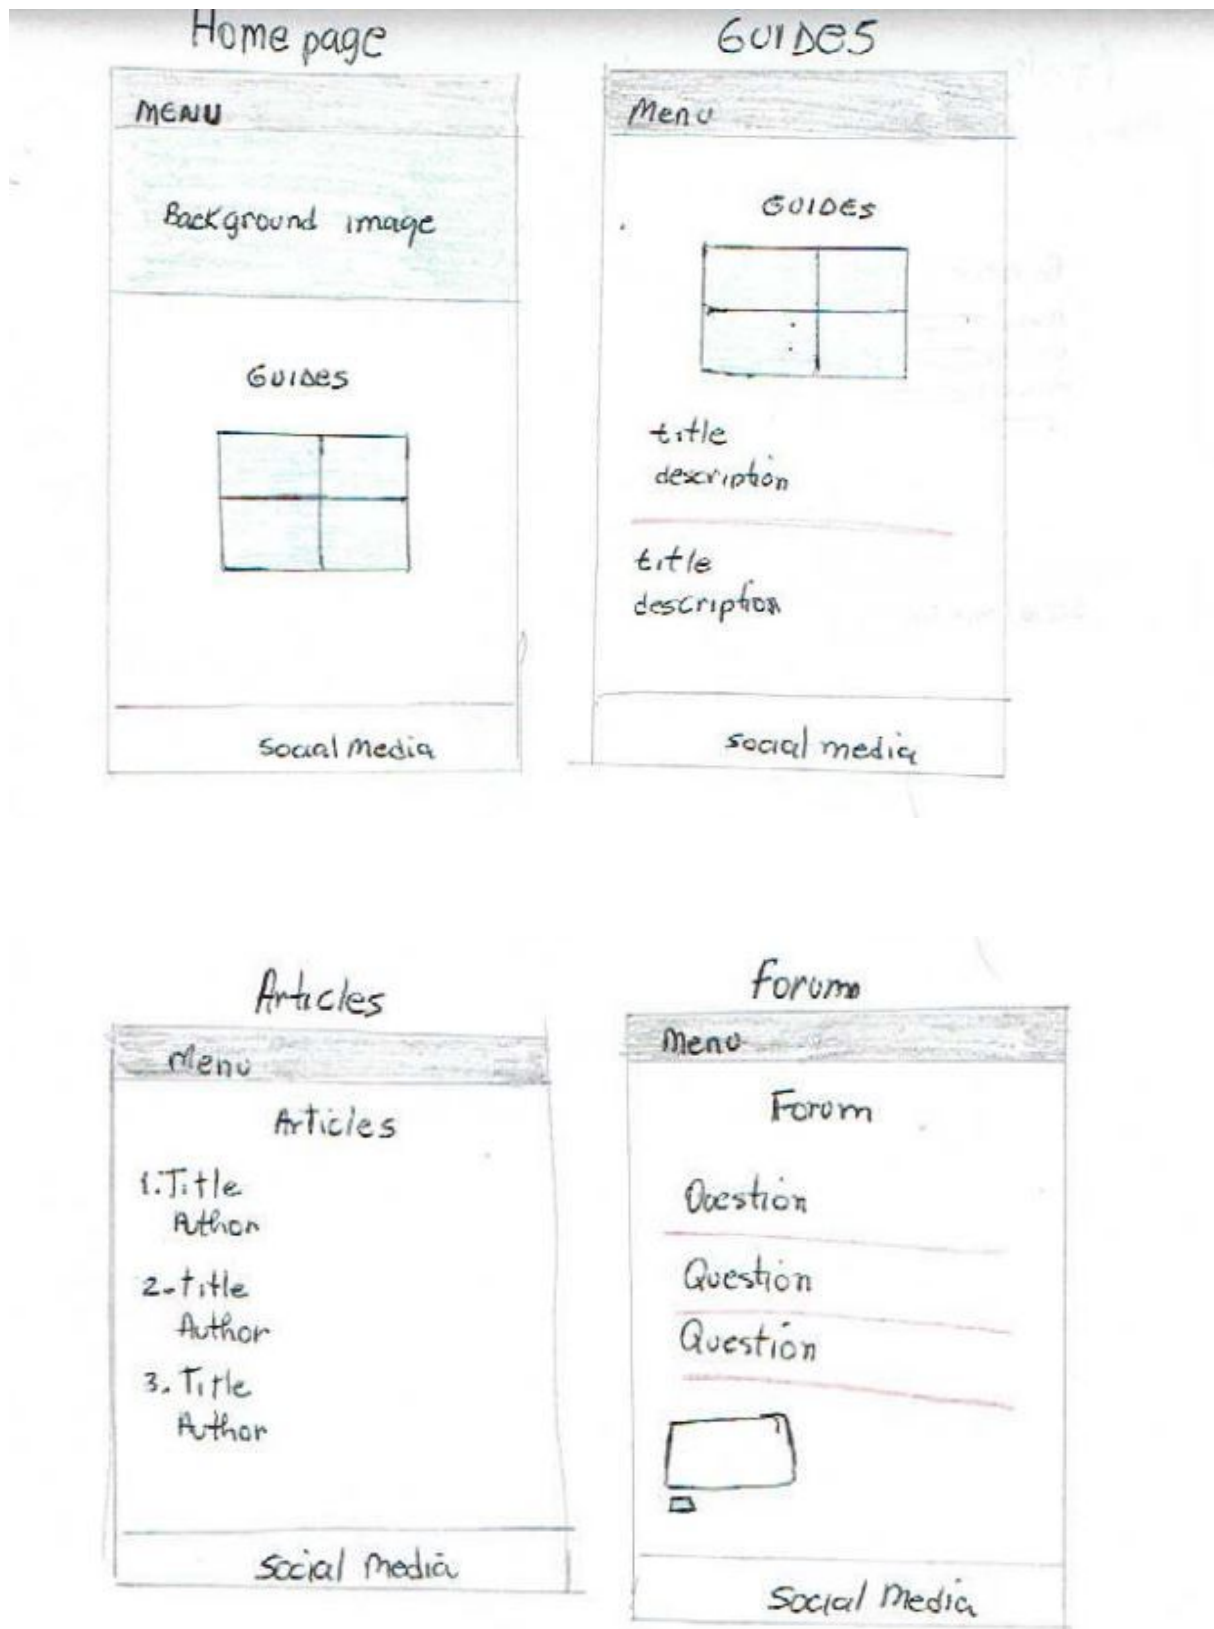 Home page
MENU
Background image
GUIDES
Social Media
GUIDES
Menu
GUIDES
title
description
title
description
social media
Articles
Menu
Articles
1. Title
Author
2. title
Author
3. Title
Author
Social Media
Forum
Menu
Forum
Question
Question
Question
Social Media